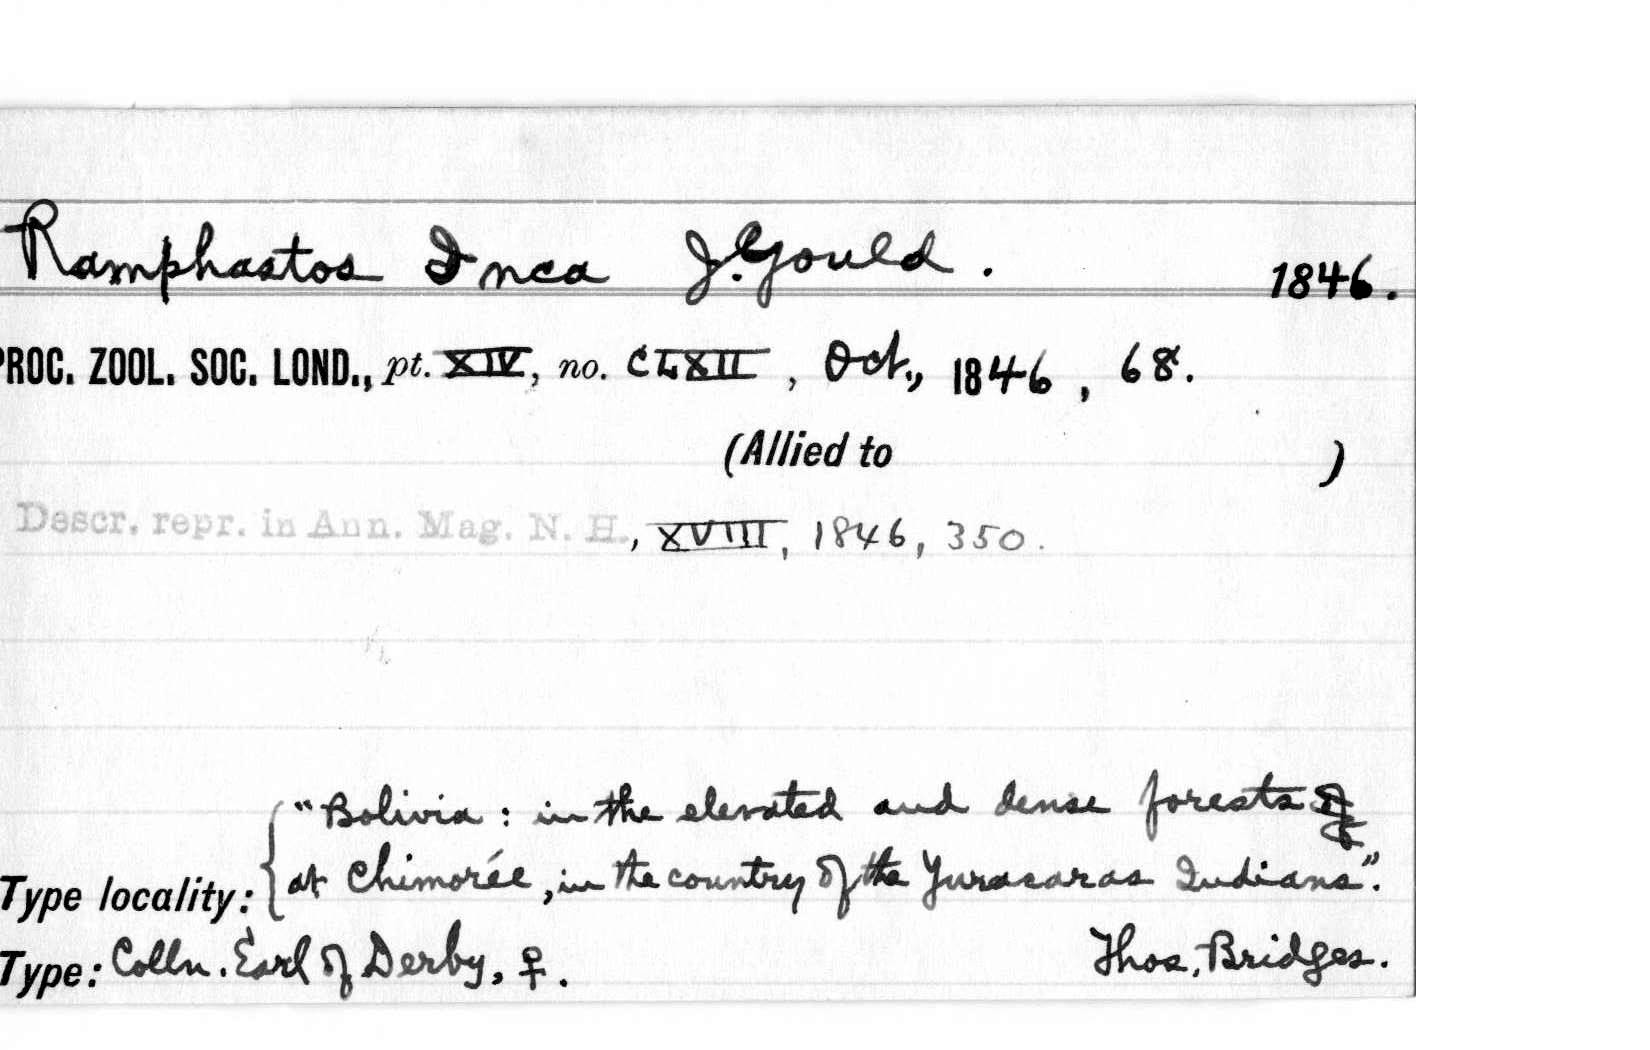 Ramphastos Inca J. Gould. 1846.
PROC. ZOOL. SOC. LOND., pt. XIV, no. CLXII, Oct., 1846, 68.
(Allied to )
Descr. repr. in Ann. Mag. N. H., XVIII, 1846, 350.
"Bolivia: in the elevated and dense forests of
Type locality: { at Chimorée, in the country of the Yuracaras Indians".
Type: Colln. Earl of Derby, ♀. Thos. Bridges.